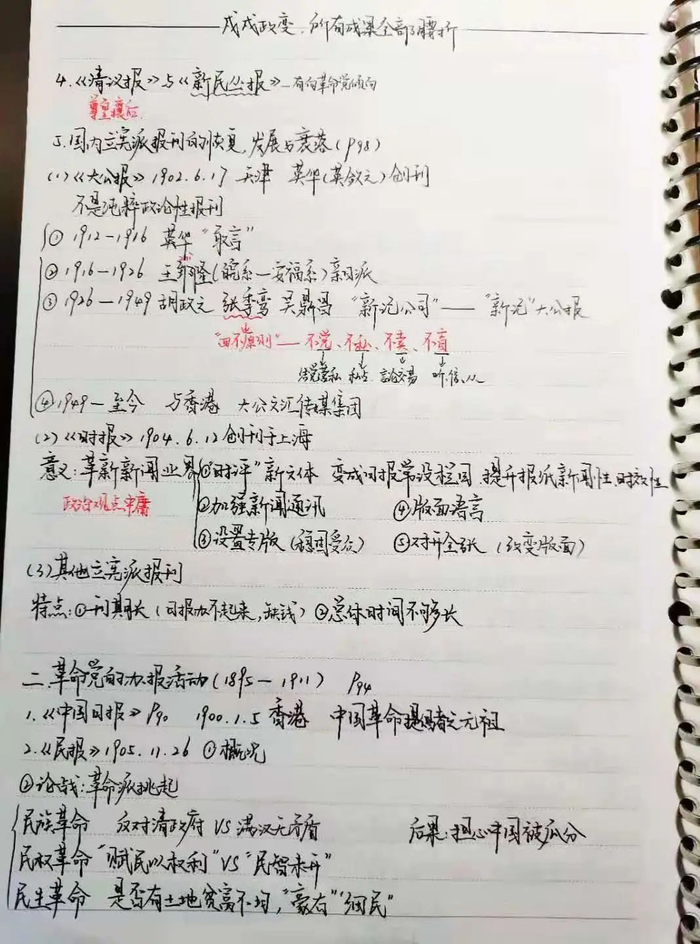 戊戌政变,所有成果全部腰折
4.《清议报》与《新民丛报》—有向革命党倾向
尊皇攘后
5.国内立宪派报刊的恢复,发展与衰落(P98)
(1)《大公报》1902.6.17 天津 英华(英敛之)创刊
不是纯粹政论性报刊
① 1912-1916 英华“敢言”
② 1916-1926 王郅隆(皖系—安福系)亲日派
③ 1926—1949 胡政之 张季鸾 吴鼎昌 “新记公司”——“新记”大公报
“四不原则”—不党、不私、不卖、不盲
结党营私 私占 言论交易 听、信、从
④1949—至今 与香港 大公文汇传媒集团
(2)《时报》1904.6.12创刊于上海
意义:革新新闻业界 ①“时评”新文体 变成日报常设栏目 提升报纸新闻性 时效性
政治观点中庸 ②加强新闻通讯 ④版面语言
③设置专版(稳固受众) ⑤对开全张(改变版面)
(3)其他立宪派报刊
特点:①刊期长(日报办不起来,缺钱)②总体时间不够长
二.革命党的办报活动(1895-1911) P94
1.《中国日报》P90 1900.1.5 香港 中国革命提倡者之元祖
2.《民报》1905.11.26 ①概况
②论战:革命派挑起
民族革命 反对清政府 VS 满汉无矛盾 后果:担心中国被瓜分
民权革命“赋民以权利”VS“民智未开”
民生革命 是否有土地贫富不均,“豪右”“细民”